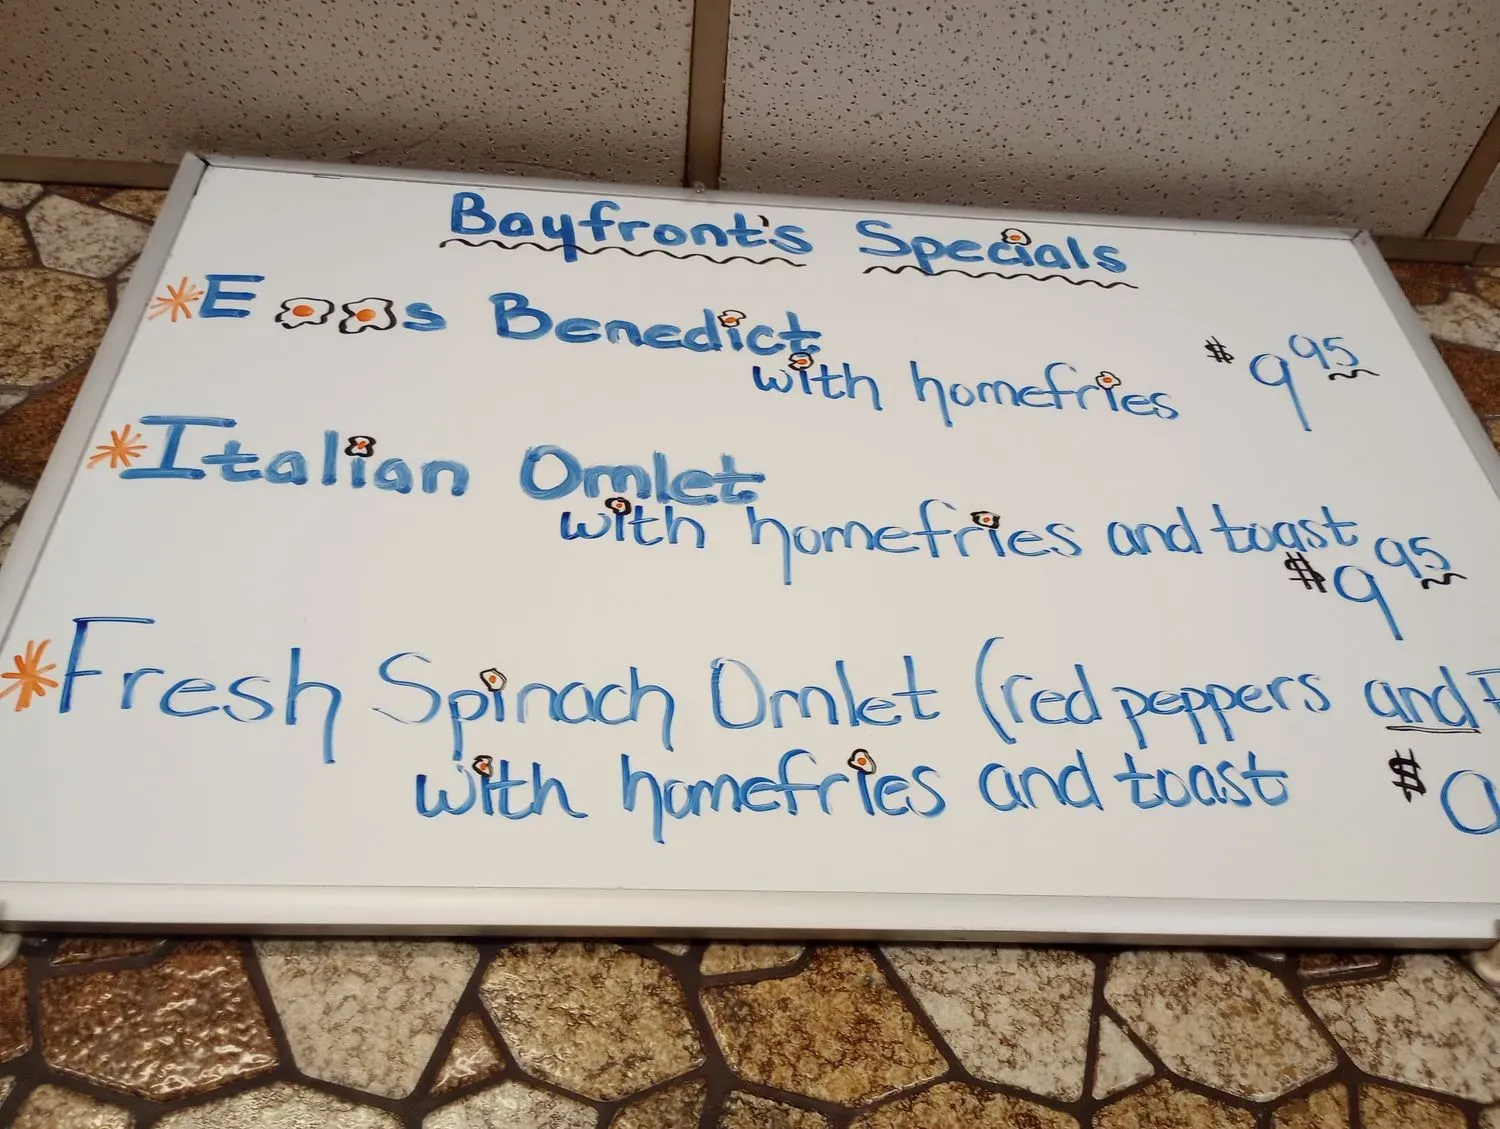 Bayfront's Specials
*Eggs Benedict
with homefries $9.95
*Italian Omlet
with homefries and toast
$9.95
*Fresh Spinach Omlet (red peppers and
with homefries and toast $